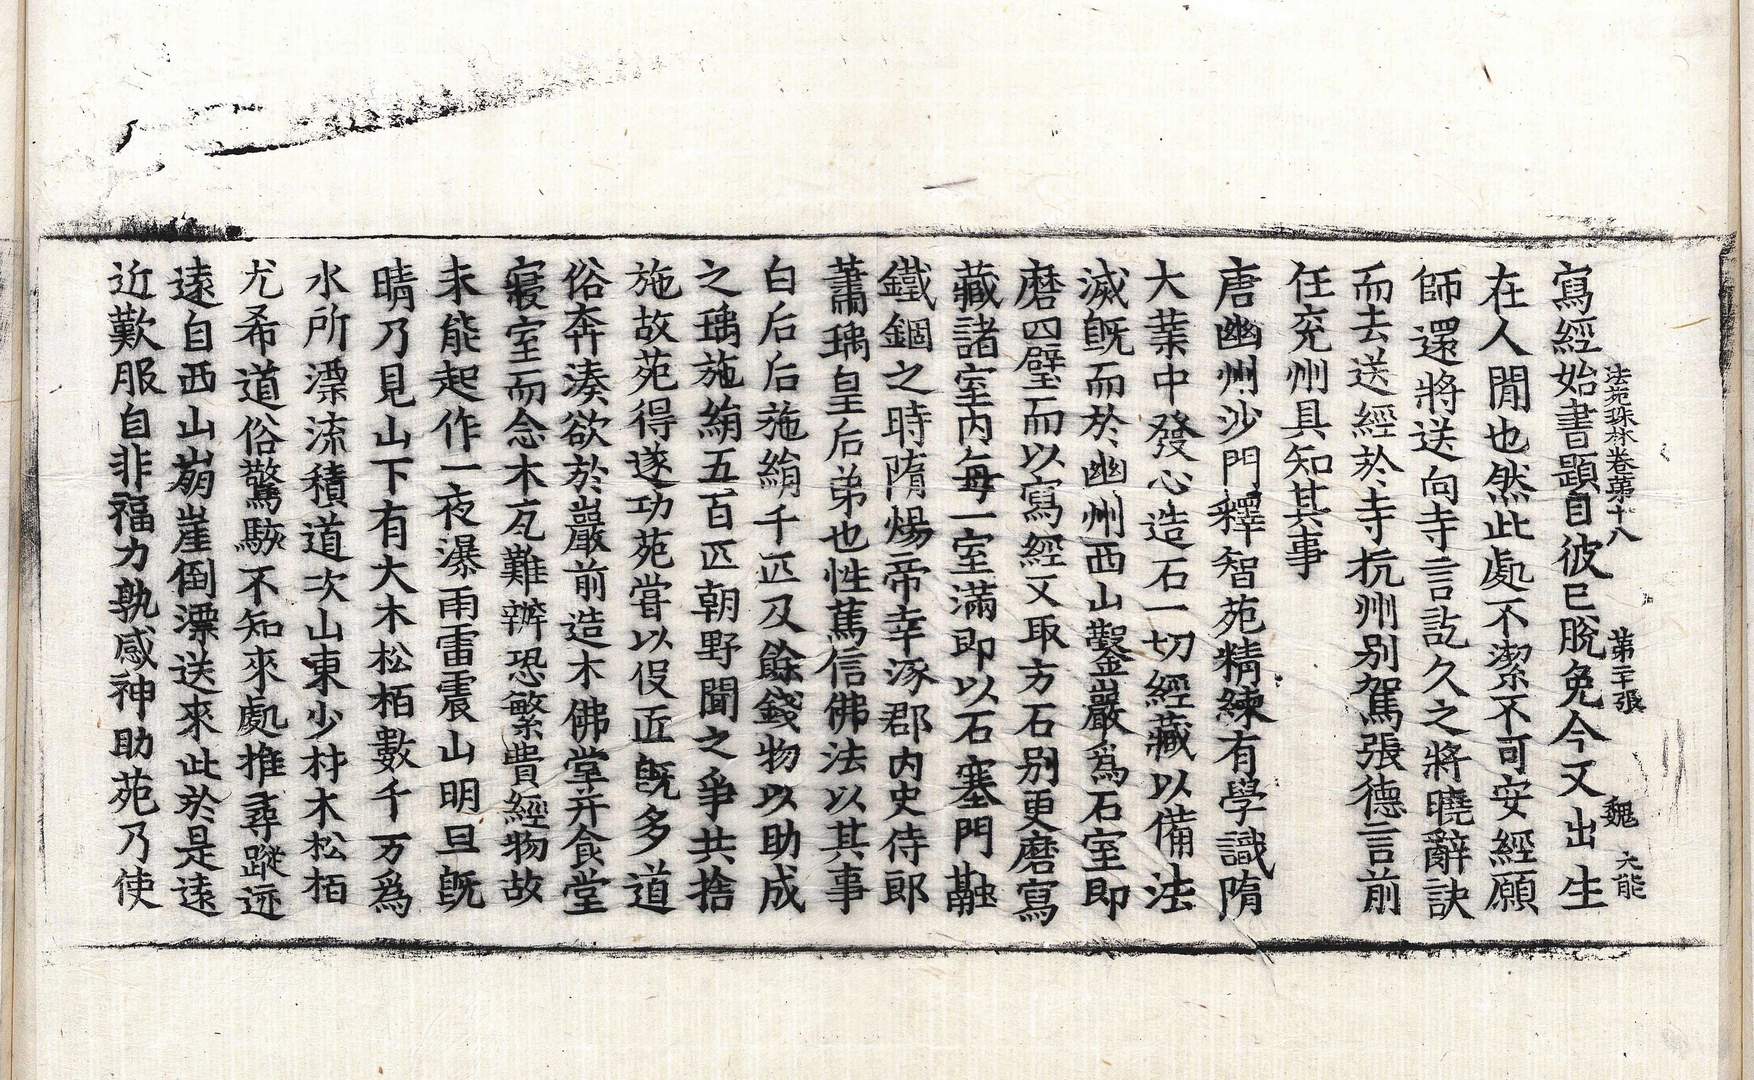 法苑珠林卷第十八 第二十張 魏 大能
寫經始書題自彼已脫免今又出生
在人閒也然此處不潔不可安經願
師還將送向寺言訖久之將曉辭訣
而去送經於寺杭州别駕張德言前
任兖州具知其事
唐幽州沙門釋智苑精練有學識隋
大業中發心造石一切經藏以備法
滅旣而於幽州西山鑿巖爲石室即
磨四壁而以寫經又取方石别更磨寫
藏諸室内每一室滿即以石塞門融
鐵錮之時隋煬帝幸涿郡内史侍郎
蕭瑀皇后弟也性篤信佛法以其事
白后后施絹千匹及餘錢物以助成
之瑀施絹五百匹朝野聞之爭共捨
施故苑得遂功苑嘗以役匠旣多道
俗奔湊欲於巖前造木佛堂并食堂
寢室而念木瓦難辦恐繁費經物故
未能起作一夜瀑雨雷震山明旦旣
晴乃見山下有大木松栢數千万爲
水所漂流積道次山東少林木松栢
尤希道俗驚駭不知來處推尋蹤迹
遠自西山崩崖倒漂送來此於是遠
近歎服自非福力孰感神助苑乃使